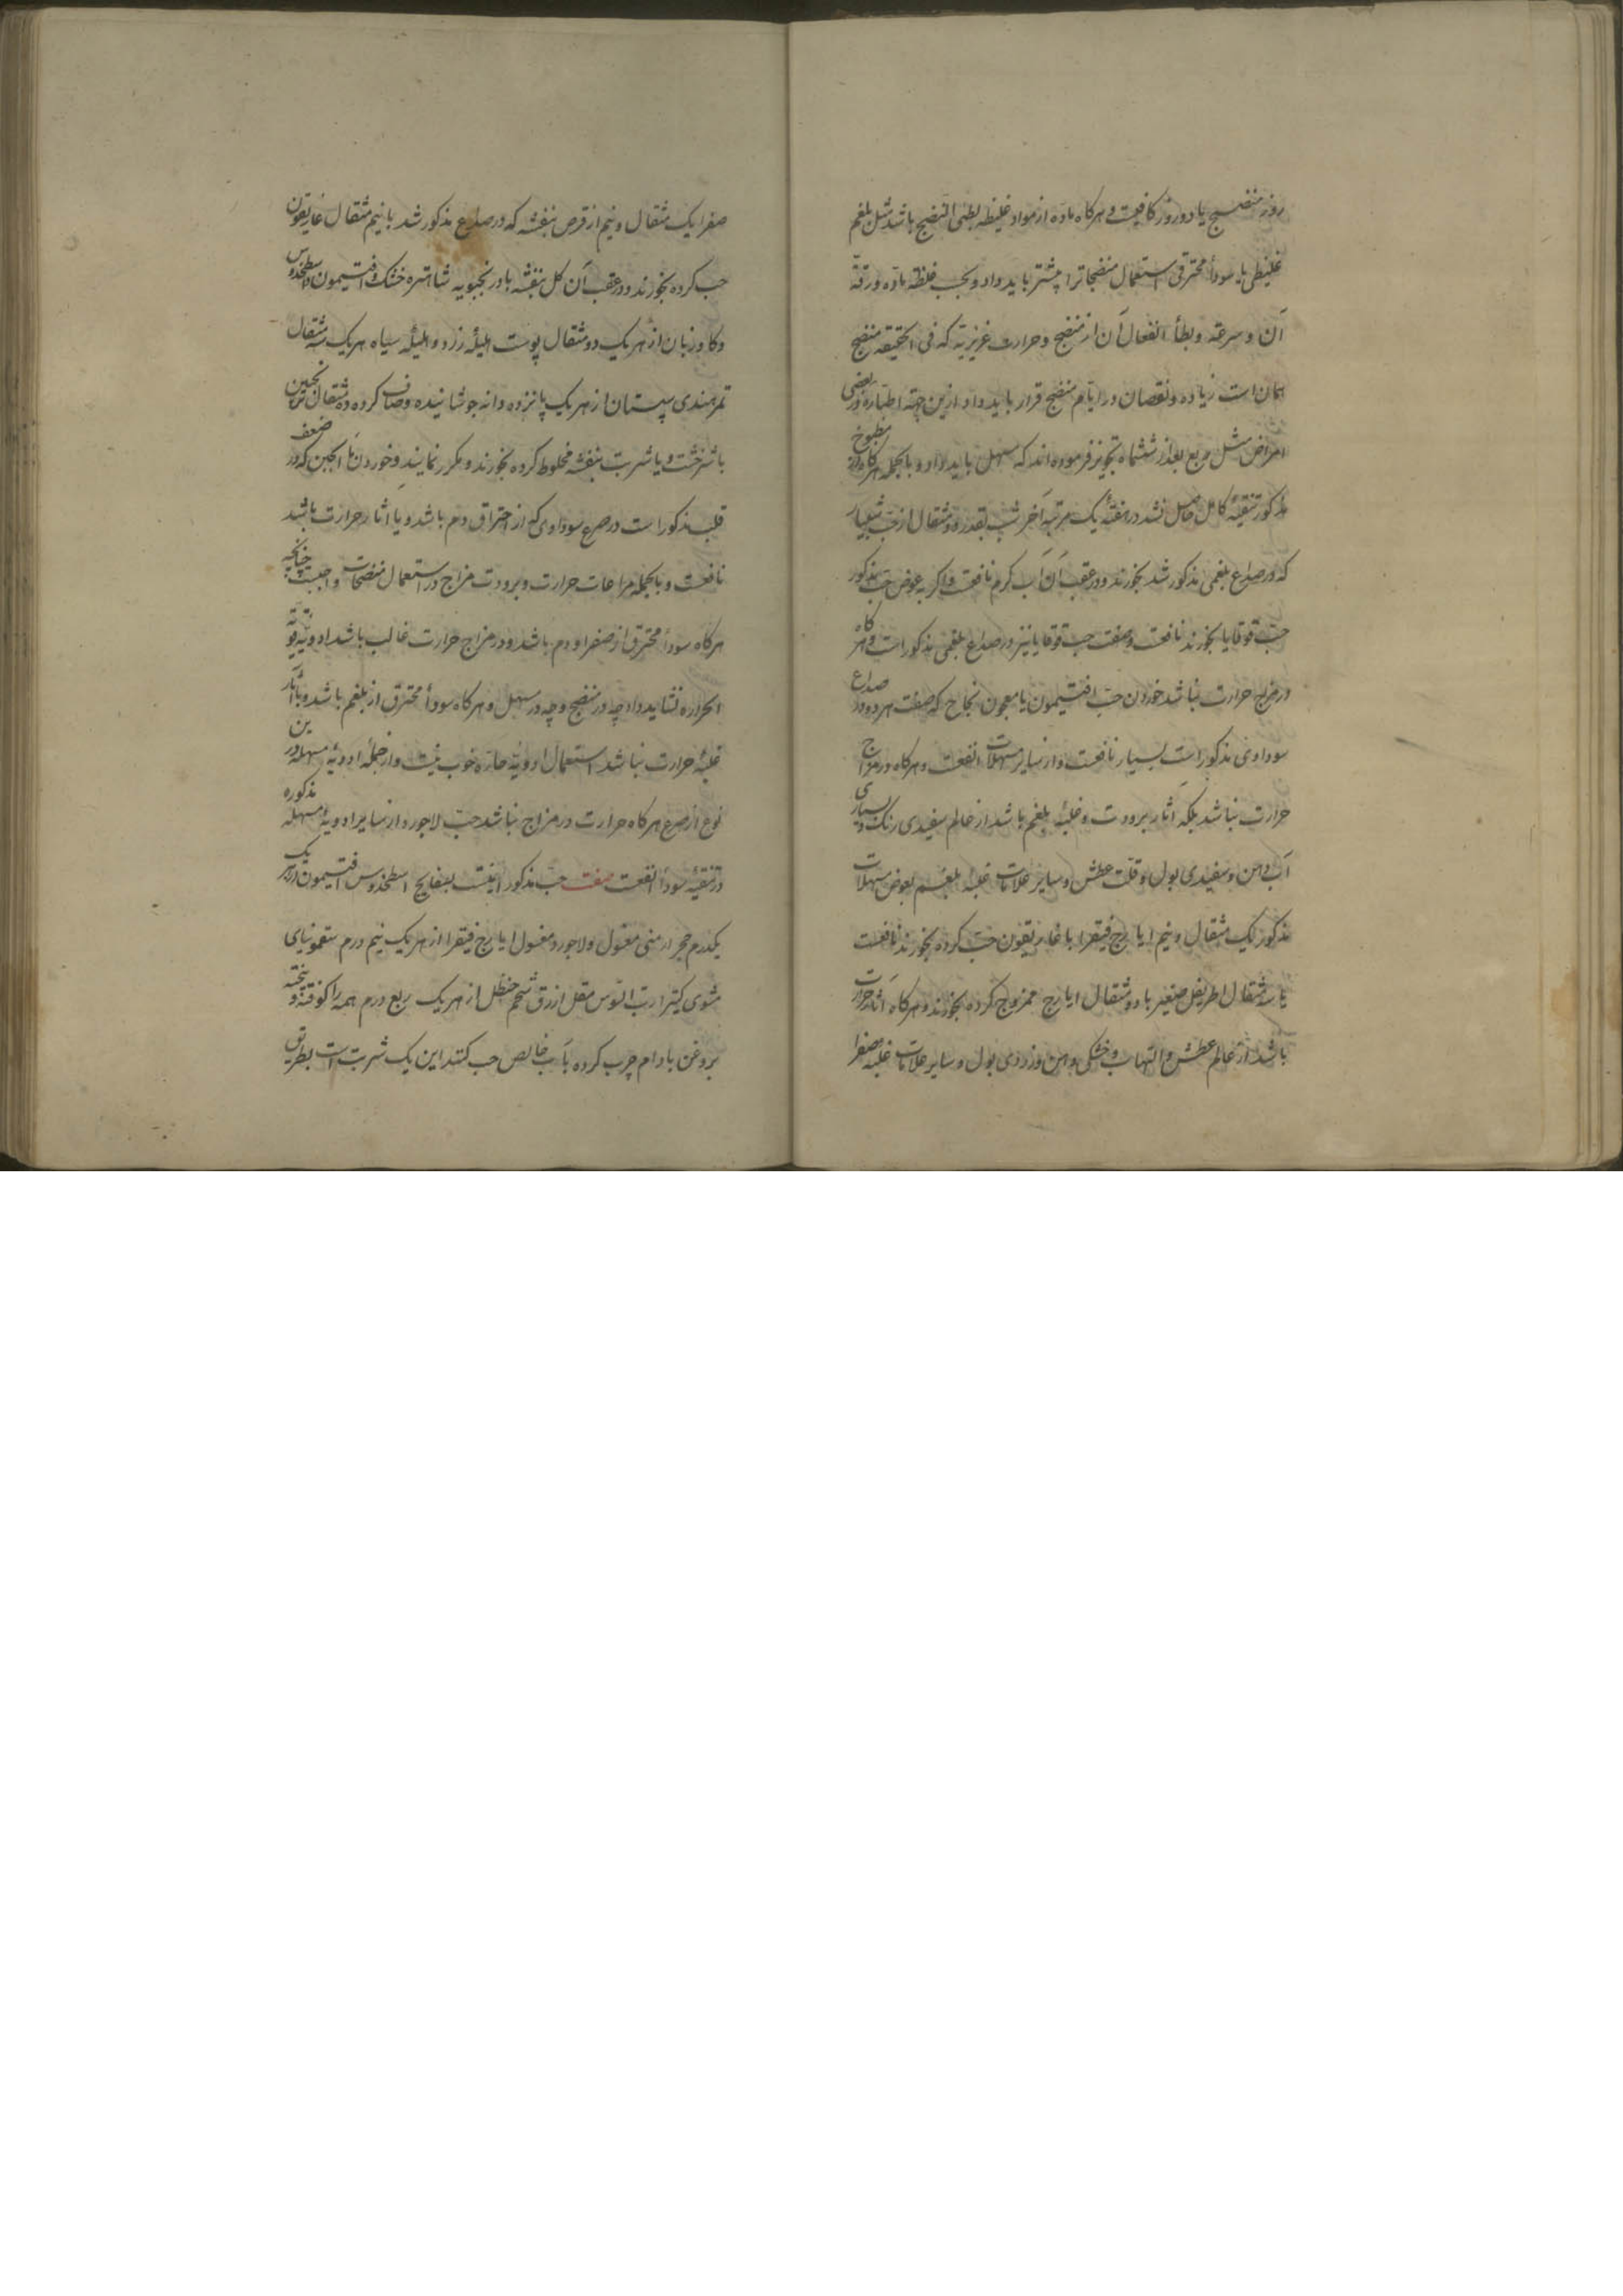 روز منضج یا دو روز کافیست و هرکاه ماده از مواد غلیظه بطئی النضج باشد مثل بلغم
غلیظی یا سودأ محترقی استعمال منضجاترا پیشتر باید داد و بحسب غلظة ماده ورقة
آن و سرعة و بطأ انفعال آن از منضج و حرارت غریزیه که فی الحقیقه منضج
همان است زیاده و نقصان در ایام منضج قرار باید داد و ازین جهة اطبا ره در بعضی
امراض مثل ربع بعد از ششماه تجویز فرموده اند که مسهل باید داد و بالجمله هرکاه از مطبوخ
مذکور تنقیهٔ کامل حاصل نشد در هفتهٔ یک مرتبه آخر شب بقدر دو مثقال از حب شبیار
که در صداع بلغمی مذکور شد بخورند و در عقب آن آب کرم نافعست و اکر بعوض حب مذکور
حب قوقایا بخورند نافعست و صفت حب قوقایا نیز در صداع بلغمی مذکور است و هرکاه
در مزاج حرارت نباشد خوردن حب افتیمون یا معجون نجاح که صفت هر دو در صداع
سوداوی مذکور است بسیار نافعست و از سایر مسهلات انفعست و هرکاه در مزاج
حرارت نباشد بلکه آثار برودت و غلبهٔ بلغم باشد از عالم سفیدی رنک و بسیاری
آب دهن و سفیدی بول و قلت عطش و سایر علامات غلبهٔ بلغم بعوض مسهلات
مذکور یک مثقال و نیم ایارج فیقرا با غاریقون حب کرده بخورند نافعست
یا سه مثقال اطریفل صغیر با دو مثقال ایارج ممزوج کرده بخورند و هرکاه آثار حرارت
باشد از عالم عطش و التهاب و خشکی دهن و زردی بول و سایر علامات غلبه صفرا
صفرا یک مثقال و نیم از قرص بنفشه که در صداع مذکور شد با نیم مثقال غاریقون
حب کرده بخورند و در عقب آن کل بنفشه بادرنجبویه شاهتره خشک و افتیمون و اسطخدوس
و کاوزبان از هر یک دو مثقال پوست هلیلهٔ زرد و هلیلهٔ سیاه هر یک سه مثقال
تمرهندی سپستان از هر یک پانزده دانه جوشانیده و صاف کرده ده مثقال ترنجبین
با شرخشت و یا شربت بنفشه مخلوط کرده بخورند و مکرر نمایند و خوردن ماء الجبن که در ضعف
قلب مذکور است در صرع سوداوی که از احتراق دم باشد و یا آثار حرارت باشد
نافعست و بالجمله مراعات حرارت و برودت مزاج در استعمال منضجات واجبست چنانچه
هرکاه سودأ محترق از صفرا و دم باشد و در مزاج حرارت غالب باشد ادویهٔ قویة
الحراره نشاید داد چه در منضج و چه در مسهل و هرکاه سودأ محترق از بلغم باشد و با آثار
غلبهٔ حرارت نباشد استعمال ادویهٔ حاره خوب نیست و از جملهٔ ادویهٔ مسهله در این
نوع از صرع هرکاه حرارت در مزاج نباشد حب لاجورد از سایر ادویهٔ مسهله مذکوره
در تنقیهٔ سودأ انفعست صفت حب مذکور اینست بسفایج اسطخدوس افتیمون از هر یک
یکدرم حجر ارمنی مغسول و لاجورد مغسول ایارج فیقرا از هر یک نیم درم سقمونیای
مشوی کتیرا رب السوس مقل ازرق شحم حنظل از هر یک ربع درم همه را کوفته و بیخته
بروغن بادام چرب کرده بآب خالص حب کنند این یک شربت است بطریق